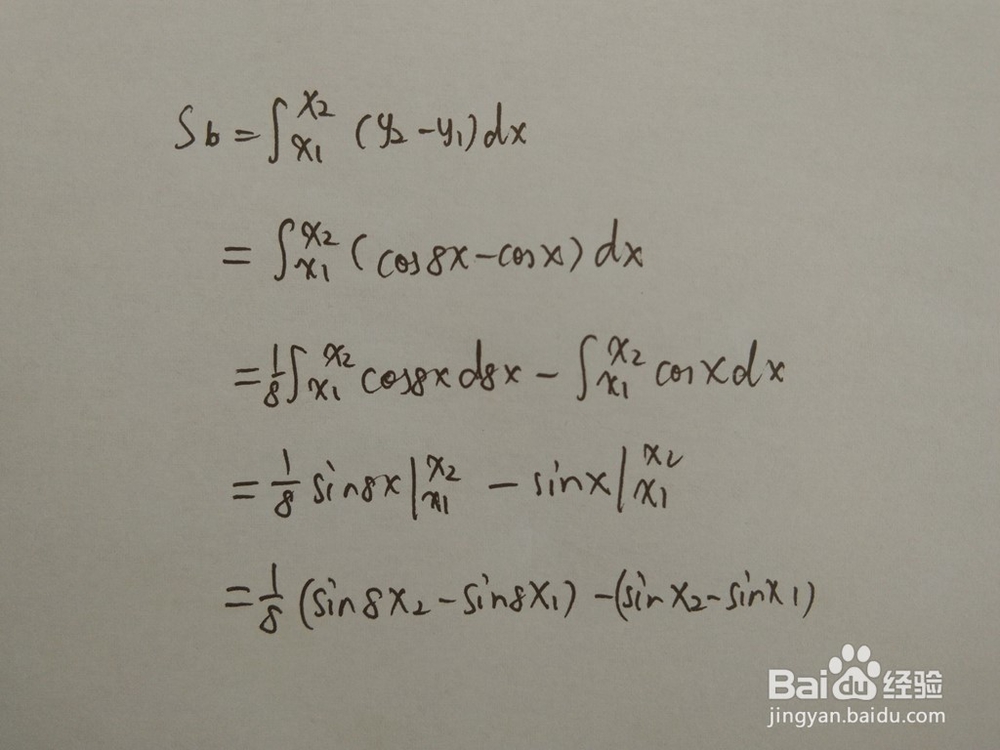 Sb = ∫_{x1}^{x2} (y2 - y1) dx
= ∫_{x1}^{x2} (cos8x - cosx) dx
= 1/8 ∫_{x1}^{x2} cos8x d8x - ∫_{x1}^{x2} cosx dx
= 1/8 sin8x |_{x1}^{x2} - sinx |_{x1}^{x2}
= 1/8 (sin8x2 - sin8x1) - (sinx2 - sinx1)
Bai du 经验
jingyan.baidu.com